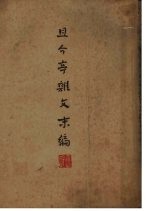 且介亭雜文末編